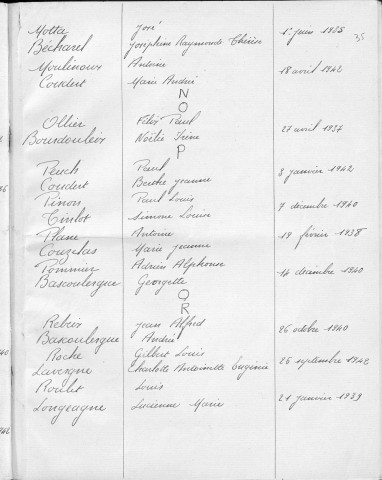 35
Motta José 1er juin 1935
Bécharel Joséphine Raymonde Thérèse
Moulinoux Antoine 18 avril 1942
Coudert Marie André
N
O
Ollier Félix Paul 27 avril 1937
Bourdouleix Noëlie Irène
P
Peuch Paul 8 janvier 1942
Coudert Berthe Jeanne
Pinon Paul Louis 7 décembre 1940
Tinlot Simone Louise
Plane Antoine 19 février 1938
Couzelas Marie Jeanne
Pommier Adrien Alphonse 14 décembre 1940
Bascoulergue Georgette
Q
R
Rebeix Jean Alfred 26 octobre 1940
Bascoulergue André
Roche Gilbert Louis 26 septembre 1942
Lavergne Charlotte Antoinette Eugénie
Roulet Louis 21 janvier 1939
Longeagne Lucienne Marie